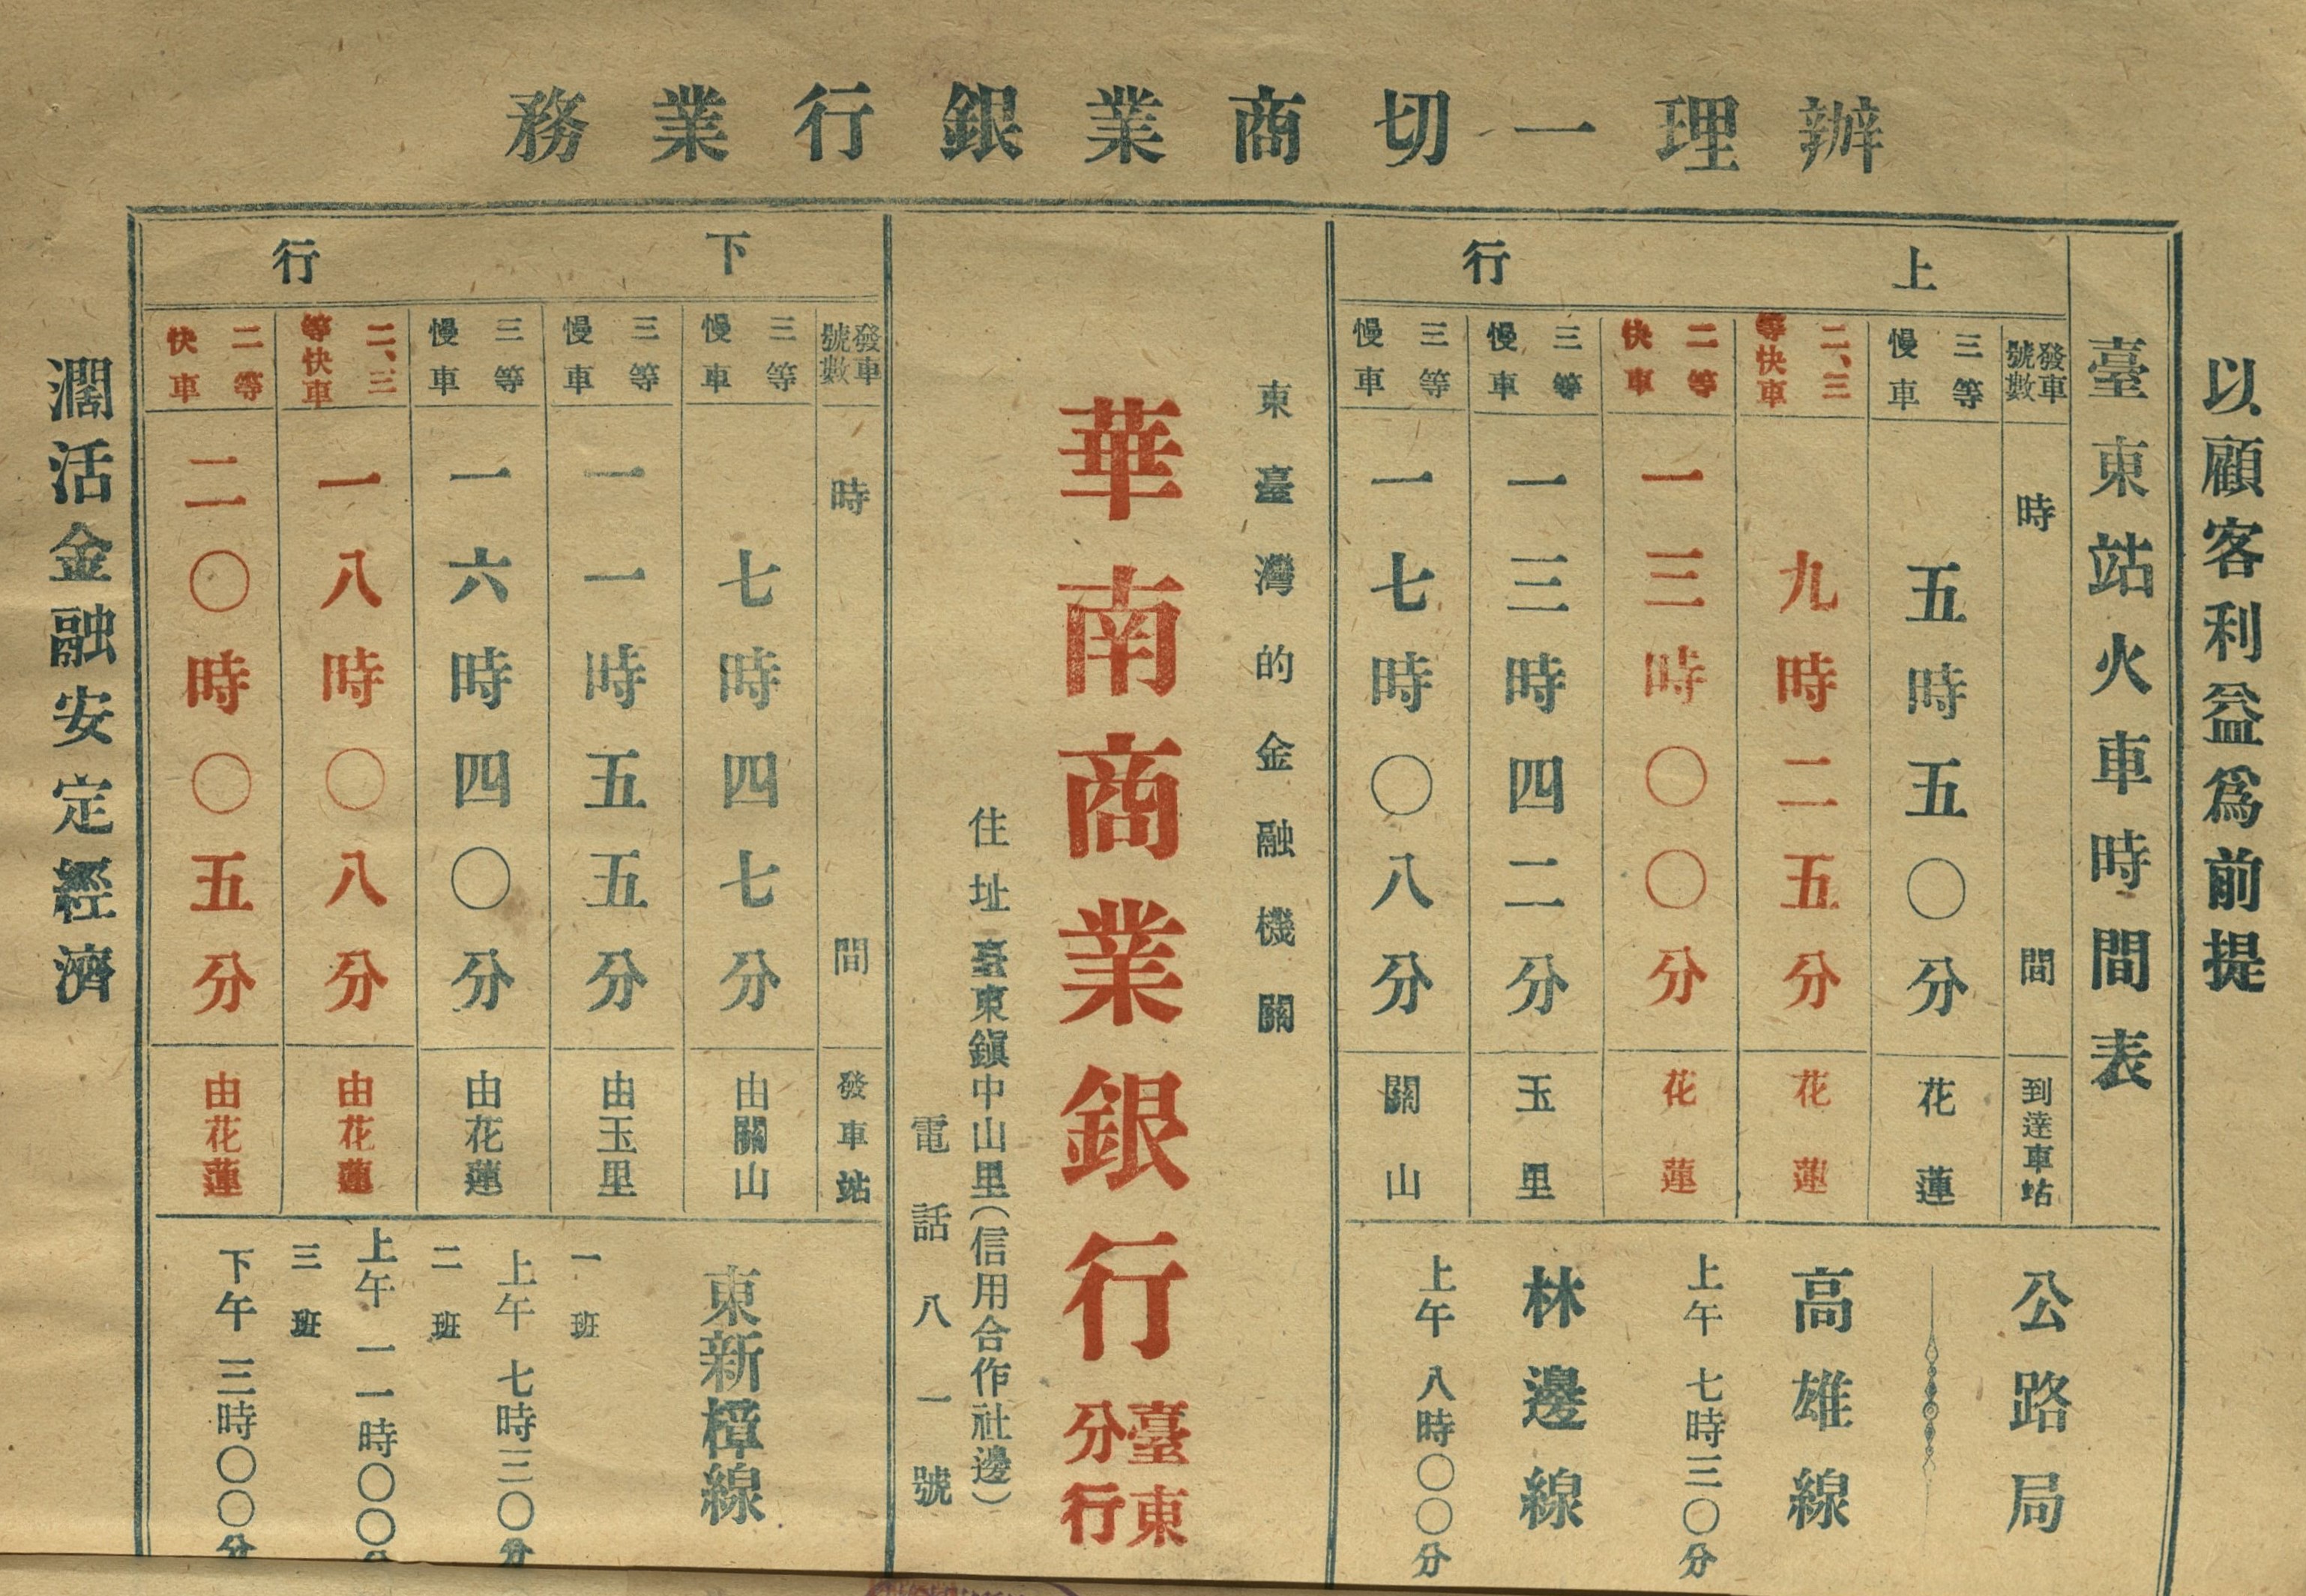 辦理一切商業銀行業務
以顧客利益爲前提
臺東站火車時間表
上行
發車號數 時間 到達車站
三等慢車 五時五〇分 花蓮
二、三等快車 九時二五分 花蓮
二等快車 一三時〇〇分 花蓮
三等慢車 一三時四二分 玉里
三等慢車 一七時〇八分 關山
公路局
高雄線
上午 七時三〇分
林邊線
上午 八時〇〇分
東臺灣的金融機關
華南商業銀行臺東分行
住址臺東鎭中山里(信用合作社邊)
電話八一號
下行
發車號數 時間 發車站
三等慢車 七時四七分 由關山
三等慢車 一一時五五分 由玉里
三等慢車 一六時四〇分 由花蓮
二、三等快車 一八時〇八分 由花蓮
二等快車 二〇時〇五分 由花蓮
東新樟線
一班
上午 七時三〇分
二班
上午 一一時〇〇分
三班
下午 三時〇〇分
濶活金融安定經濟